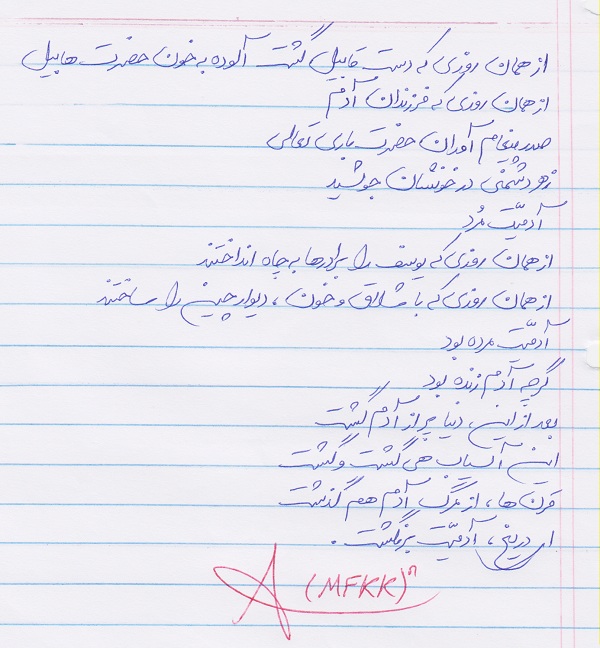 از همان روزی که دست قابیل گشت آلوده به خون حضرت هابیل
از همان روزی که فرزندان آدم
صدر پیغام آوران حضرت باری تعالی
زهر دشمنی در خونشان جوشید
آدمیّت مُرد
از همان روزی که یوسف را برادرها به چاه انداختند
از همان روزی که با شلاق و خون ، دیوار چین را ساختند
آدمیّت مرده بود
گرچه آدم زنده بود
بعد از این ، دنیا پر از آدم گشت
این آسیاب هی گشت و گشت
قرن ها ، از مرگ آدم هم گذشت
ای دریغ ، آدمیّت برنگشت .
(MFKK)ⁿ